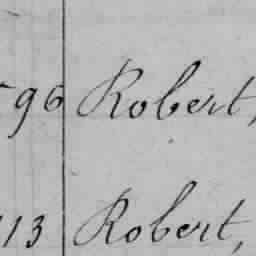 596 Robert,
113 Robert,